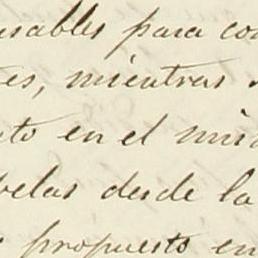 usables para con
tes, mientras
nto en el mis
velas desde la
propuesto en